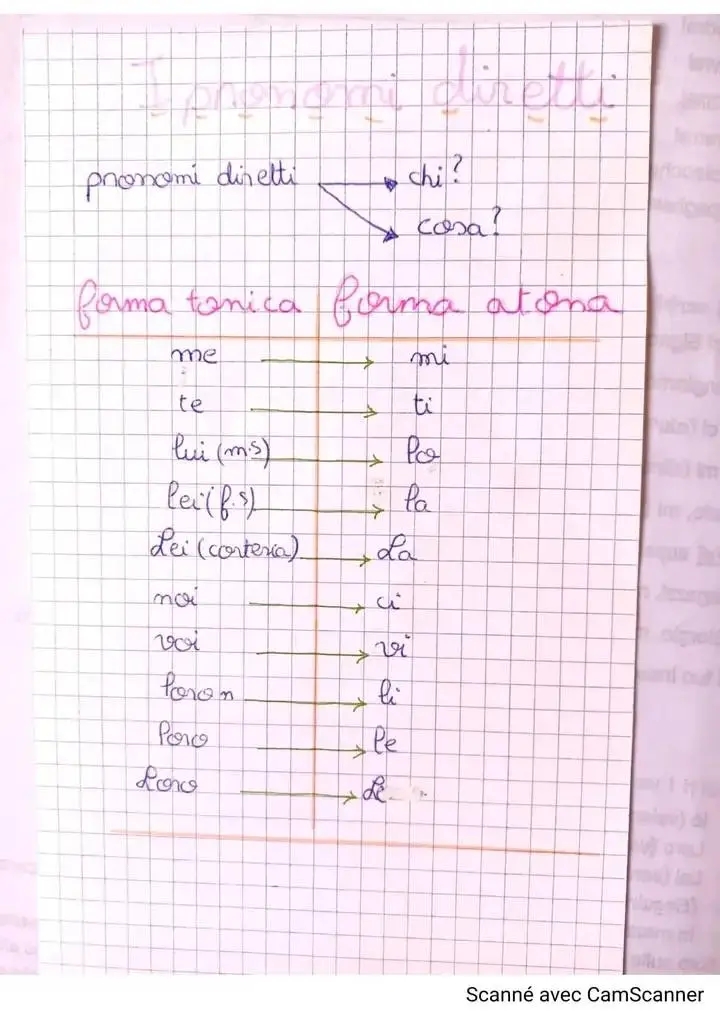 I pronomi diretti
pronomi diretti → chi?
→ cosa?
forma tonica forma atona
me → mi
te → ti
lui (m.s) → lo
lei (f.s) → la
Lei (cortesia) → La
noi → ci
voi → vi
loro → li
loro → le
Loro →
Scanné avec CamScanner